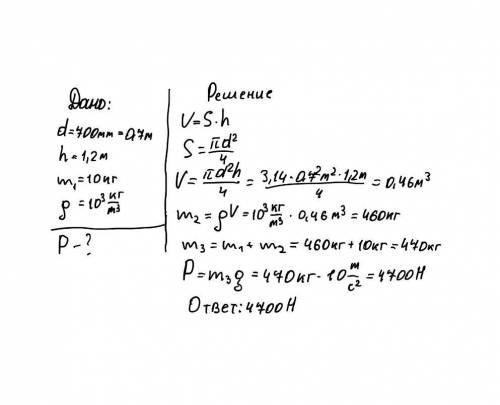 Дано:
d=700мм=0,7м
h=1,2м
m₁=10кг
ρ=10³ кг/м³
P-?
Решение
V=S·h
S=πd²/4
V=πd²h/4=3,14·0,7²м²·1,2м/4=0,46м³
m₂=ρV=10³ кг/м³·0,46м³=460кг
m₃=m₁+m₂=460кг+10кг=470кг
P=m₃g=470кг·10 м/с²=4700Н
Ответ:4700Н